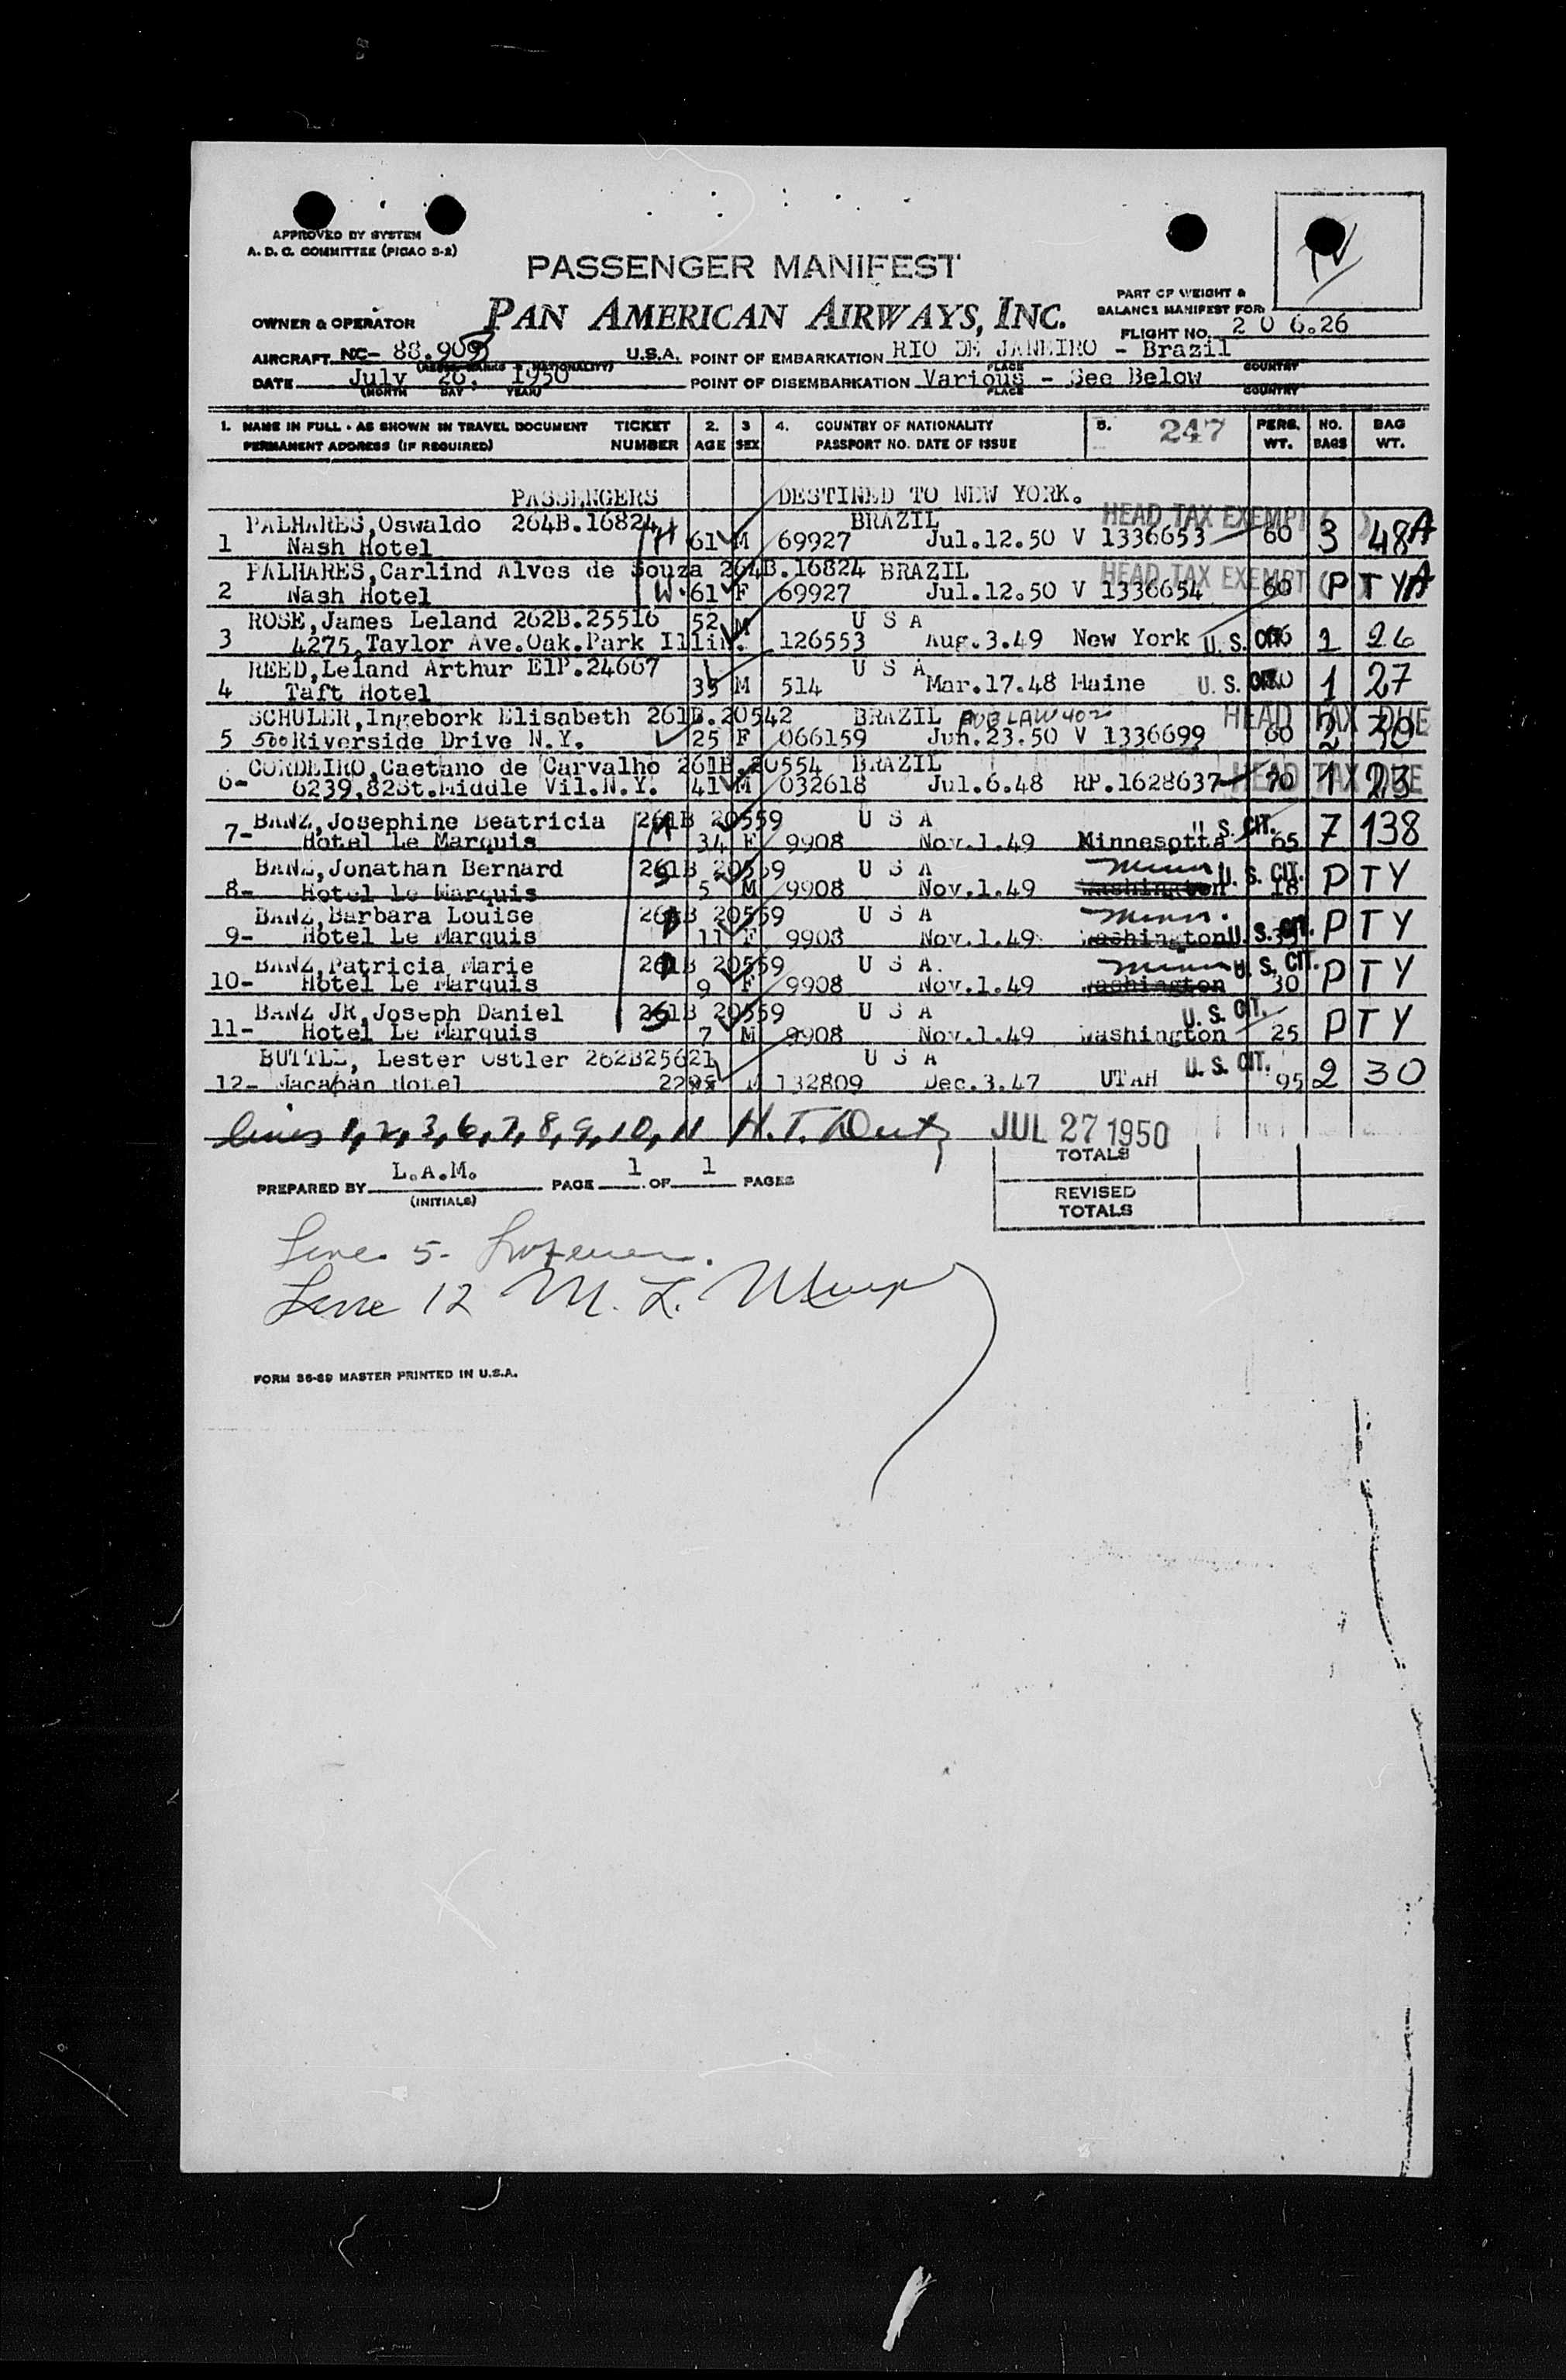 APPROVED BY SYSTEM
A. D. C. COMMITTEE (PICAO S-2)
PASSENGER MANIFEST
PAN AMERICAN AIRWAYS, INC.
PART OF WEIGHT &
BALANCE MANIFEST FOR:
OWNER & OPERATOR
FLIGHT NO. 2 0 6.26
AIRCRAFT NC- 88.909 U.S.A. POINT OF EMBARKATION RIO DE JANEIRO - Brazil
PLACE COUNTRY
DATE July 26, 1950 POINT OF DISEMBARKATION Various - See Below
(MONTH DAY YEAR) PLACE COUNTRY
1. NAME IN FULL - AS SHOWN IN TRAVEL DOCUMENT TICKET 2. 3 4. COUNTRY OF NATIONALITY 5. 247 PERS. NO. BAG
PERMANENT ADDRESS (IF REQUIRED) NUMBER AGE SEX PASSPORT NO. DATE OF ISSUE WT. BAGS WT.
PASSENGERS DESTINED TO NEW YORK.
PALHARES,Oswaldo 264B.16824 BRAZIL HEAD TAX EXEMPT ( )
1 Nash Hotel H 61 M 69927 Jul.12.50 V 1336653 60 3 48 A
PALHARES,Carlind Alves de Souza 264B.16824 BRAZIL HEAD TAX EXEMPT ( )
2 Nash Hotel W. 61 F 69927 Jul.12.50 V 1336654 60 P T Y A
ROSE,James Leland 262B.25516 52 M U S A
3 4275,Taylor Ave.Oak.Park Illin. 126553 Aug.3.49 New York U. S. CIT. 1 26
REED,Leland Arthur E1P.24667 U S A
4 Taft Hotel 35 M 514 Mar.17.48 Maine U. S. CIT. 1 27
SCHULER,Ingebork Elisabeth 261B.20542 BRAZIL PUB LAW 402 HEAD TAX DUE
5 500 Riverside Drive N.Y. 25 F 066159 Jun.23.50 V 1336699 60 2 30
CORDEIRO,Caetano de Carvalho 261B.20554 BRAZIL HEAD TAX DUE
6- 6239,82St.Middle Vil.N.Y. 41 M 032618 Jul.6.48 RP.1628637 70 1 23
BANZ,Josephine Beatricia 261B 20559 U S A U. S. CIT.
7- Hotel Le Marquis 34 F 9908 Nov.1.49 Minnesotta 65 7 138
BANZ,Jonathan Bernard 261B 20559 U S A Minn U. S. CIT.
8- Hotel Le Marquis 5 M 9908 Nov.1.49 Washington 18 P T Y
BANZ,Barbara Louise 261B 20559 U S A Minn.
9- Hotel Le Marquis 11 F 9908 Nov.1.49 Washington U. S. CIT. P T Y
BANZ,Patricia Marie 261B 20559 U S A. Minn U. S. CIT.
10- Hotel Le Marquis 9 F 9908 Nov.1.49 Washington 30 P T Y
BANZ JR,Joseph Daniel 261B 20559 U S A U. S. CIT.
11- Hotel Le Marquis 7 M 9908 Nov.1.49 Washington 25 P T Y
BUTTLE, Lester Ostler 262B25621 U S A U. S. CIT.
12- Macapan Hotel M 132809 Dec.3.47 UTAH 95 2 30
lines 1,2,3,6,7,8,9,10,11 H.T. JUL 27 1950
TOTALS
PREPARED BY L.A.M. PAGE 1 OF 1 PAGES
(INITIALS)
REVISED
TOTALS
Line 5-
Line 12 M. L.
FORM 36-89 MASTER PRINTED IN U.S.A.